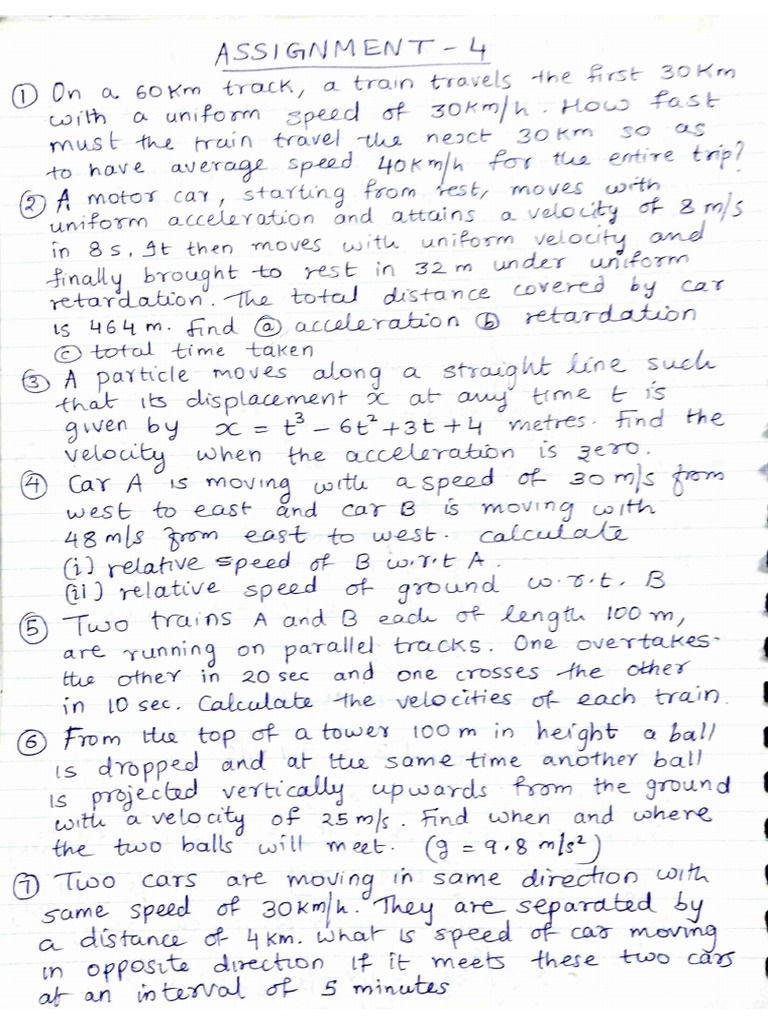 ASSIGNMENT - 4
① On a 60Km track, a train travels the first 30Km
with a uniform speed of 30km/h. How fast
must the train travel the next 30km so as
to have average speed 40km/h for the entire trip?
② A motor car, starting from rest, moves with
uniform acceleration and attains a velocity of 8 m/s
in 8s. It then moves with uniform velocity and
finally brought to rest in 32 m under uniform
retardation. The total distance covered by car
is 464m. find ⓐ acceleration ⓑ retardation
ⓒ total time taken
③ A particle moves along a straight line such
that its displacement x at any time t is
given by x = t³ - 6t² + 3t + 4 metres. find the
velocity when the acceleration is zero.
④ Car A is moving with a speed of 30 m/s from
west to east and car B is moving with
48 m/s from east to west. calculate
(i) relative speed of B w.r.t A.
(ii) relative speed of ground w.r.t. B
⑤ Two trains A and B each of length 100 m,
are running on parallel tracks. One overtakes
the other in 20 sec and one crosses the other
in 10 sec. Calculate the velocities of each train.
⑥ From the top of a tower 100 m in height a ball
is dropped and at the same time another ball
is projected vertically upwards from the ground
with a velocity of 25 m/s. Find when and where
the two balls will meet. (g = 9.8 m/s²)
⑦ Two cars are moving in same direction with
same speed of 30km/h. They are separated by
a distance of 4km. what is speed of car moving
in opposite direction if it meets these two cars
at an interval of 5 minutes